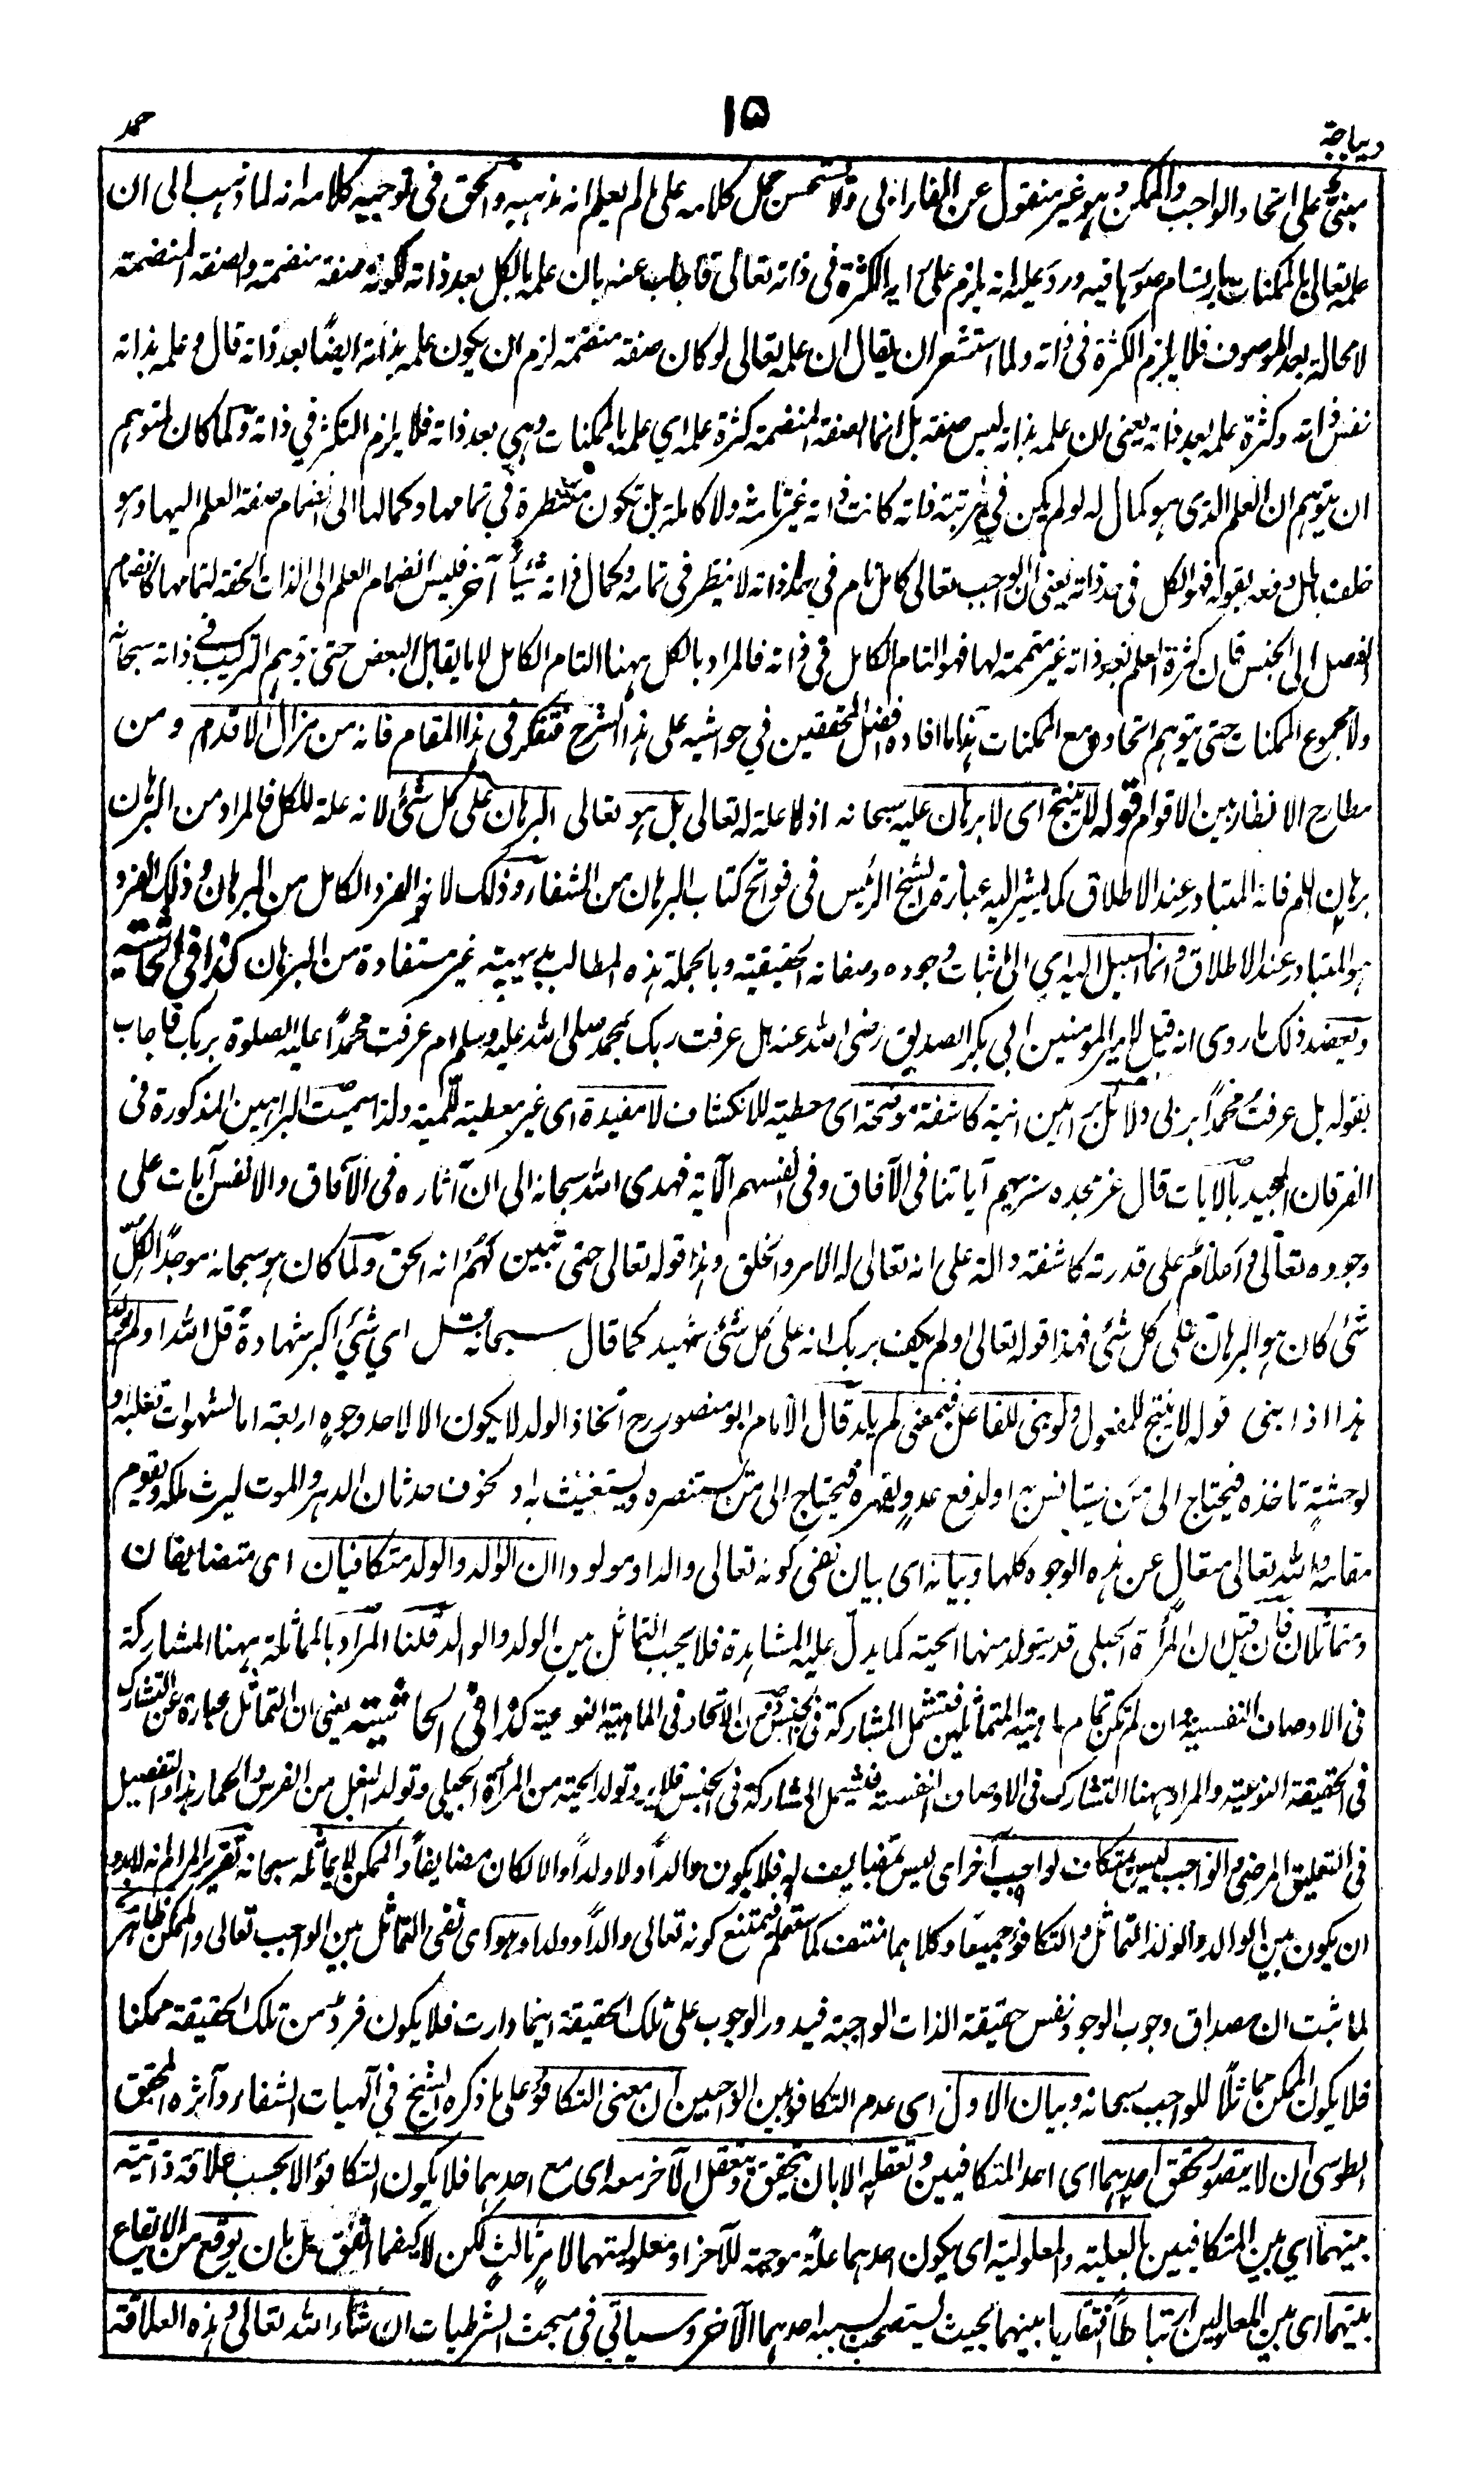 ديباجة
١٥
حمد
مبنى على اتحاد الواجب والممكن وهو غير منقول عن الفارابى ولا يستحسن حمل كلامه على ما لم يعلم انه مذهبه والحق فى توجيه كلامه انه لما ذهب الى ان
علمه تعالى بالممكنات بارتسام صورها فيه ورد عليه انه يلزم على رايه الكثرة فى ذاته تعالى فاجاب عنه بان علمه بالكل بعد ذاته لكونه صفة منضمة والصفة المنضمة
لا محالة بعد الموصوف فلا يلزم الكثرة فى ذاته ولما استشعر ان يقال ان علمه تعالى لو كان صفة منضمة لزم ان يكون علمه بذاته ايضًا بعد ذاته قال وعلمه بذاته
نفس ذاته وكثرة علمه بعد ذاته يعنى ان علمه بذاته ليس صفة بل انما الصفة المنضمة كثرة علمه اي علمه بالممكنات وهي بعد ذاته فلا يلزم التكثر في ذاته ولما كان لمتوهم
ان يتوهم ان العلم الذى هو كمال له لو لم يكن في مرتبة ذاته كانت ذاته غير تامة ولا كاملة بل تكون منتظرة في تمامها وكمالها الى انضمام صفة العلم اليها وهو
خلف باطل دفعه بقوله فهو الكل فى حد ذاته يعنى ان الواجب تعالى كامل تام في حد ذاته لا ينتظر فى تمامه وكمال ذاته شيئًا آخر فليس انضمام العلم الى الذات الحقة لتمامها كانضمام
الفصل الى الجنس فان كثرة العلم بعد ذاته غير متممة لها فهو التام الكامل فى ذاته فالمراد بالكل ههنا التام الكامل لا ما يقابل البعض حتى توهم التركيب فى ذاته سبحانه
ولا مجموع الممكنات حتى يتوهم اتحاده مع الممكنات هذا ما افاده افضل المحققين في حواشيه على هذا الشرح فتفكر فى هذا المقام فانه من مزال الاقدام ومن
مطارح الانظار بين الاقوام قوله لا ينتج اى لا برهان عليه سبحانه اذ لا علة له تعالى بل هو تعالى البرهان على كل شئ لانه علة للكل فالمراد من البرهان
برهان اللم فانه المتبادر عند الاطلاق كما يشير اليه عبارة الشيخ الرئيس فى فواتح كتاب البرهان من الشفاء وذلك لانه الفرد الكامل من البرهان وذلك الفرد
هو المتبادر عند الاطلاق وانما السبيل اليه اي الى اثبات وجوده وصفاته الحقيقية وبالجملة هذه المطالب بديهية غير مستفادة من البرهان كذا فى الحاشية
ويعضد ذلك ما روى انه قيل لامير المومنين ابى بكر الصديق رضى الله عنه هل عرفت ربك بمحمد صلى الله عليه وسلم ام عرفت محمدًا عليه الصلوة بربك فاجاب
بقوله بل عرفت محمدًا بربى ودلائل براهين انية كاشفة موضحة اى معطية للانكشاف لا مفيدة اى غير معطية للّمية ولذا سميت البراهين المذكورة فى
الفرقان المجيد بالآيات قال عز مجده سنريهم آياتنا فى الآفاق وفى انفسهم الآية فهدى الله سبحانه الى ان آثاره فى الآفاق والانفس آيات على
وجوده تعالى واعلام على قدرته كاشفة دالة على انه تعالى له الامر والخلق وهذا قوله تعالى حتى تبين لهم انه الحق ولما كان هو سبحانه موجدًا لكل
شئ كان هو البرهان على كل شئ فهذا قوله تعالى اولم يكف بربك انه على كل شئ شهيد كما قال سبحانه قل اي شئ اكبر شهادة قل الله اولم يولد
هذا اذا بنى قوله لا ينتج للمفعول ولو بنى للفاعل فبمعنى لم يلد قال الامام ابو منصور رح اتخاذ الولد لا يكون الا لاحد وجوه اربعة اما لشهوات تغلبه او
لوحشة تاخذه فيحتاج الى من يستانس به او لدفع عدو يقهره فيحتاج الى من يستنصره ويستغيث به او لخوف حدثان الدهر والموت ليرث ملكه ويقوم
مقامه والله تعالى متعال عن هذه الوجوه كلها وبيانه اى بيان نفى كونه تعالى والدا ومولودا ان الوالد والولد متكافيان اى متضايفان
ومتماثلان فان قيل ان المرأة الحبلى قد يتولد منها الحية كما يدل عليه المشاهدة فلا يجب التماثل بين الولد والوالد قلنا المراد بالمماثلة ههنا المشاركة
فى الاوصاف النفسية وان لم تكن تمام ماهية المتماثلين فتشمل المشاركة فى الجنس دون الاتحاد فى الماهية النوعية كذا فى الحاشية يعنى ان التماثل عبارة عن التشارك
فى الحقيقة النوعية والمراد ههنا التشارك فى الاوصاف النفسية فيشمل المشاركة فى الجنس فلا يرد تولد الحية من المرأة الحبلى وتولد البغل من الفرس والحمار هذا والتفصيل
فى التعليق المرضى والواجب ليس بمتكاف لواجب آخر اى ليس بمضايف له فلا يكون والدًا ولا ولدًا والا لكان مضايفًا والممكن لا يماثله سبحانه تقرير المرام انه لا بد و
ان يكون بين الوالد والولد التماثل والتكافؤ جميعًا وكلاهما منتف كما ستعلم فيمتنع كونه تعالى والدًا وولدا وهو اى نفى التماثل بين الواجب تعالى والممكن ظاهر
لما ثبت ان مصداق وجوب الوجود نفس حقيقة الذات الواجبة فيدور الوجوب على تلك الحقيقة اينما دارت فلا يكون فرد من تلك الحقيقة ممكنا
فلا يكون الممكن مماثلًا للواجب سبحانه وبيان الاول اى عدم التكافؤ بين الواجبين ان معنى التكافؤ على ما ذكره الشيخ فى آلهيات الشفاء وآثره المحقق
الطوسى ان لا يتصور تحقق احدهما اى احد المتكافيين وتعقله الا بان يتحقق ويتعقل الآخر معه اى مع احدهما فلا يكون التكافؤ الا بحسب علاقة ذاتية
بينهما اي بين المتكافيين بالعلية والمعلولية اى يكون احدهما علة موجبة للآخر او معلوليتهما لامر ثالث لكن لا كيفما اتفق بل بان يوقع من الايقاع
بينهما اى بين المعلولين ارتباطا افتقاريا بينهما بحيث يستصحب بسببه احدهما الآخر وسياتى فى مبحث الشرطيات ان شاء الله تعالى وهذه العلاقة